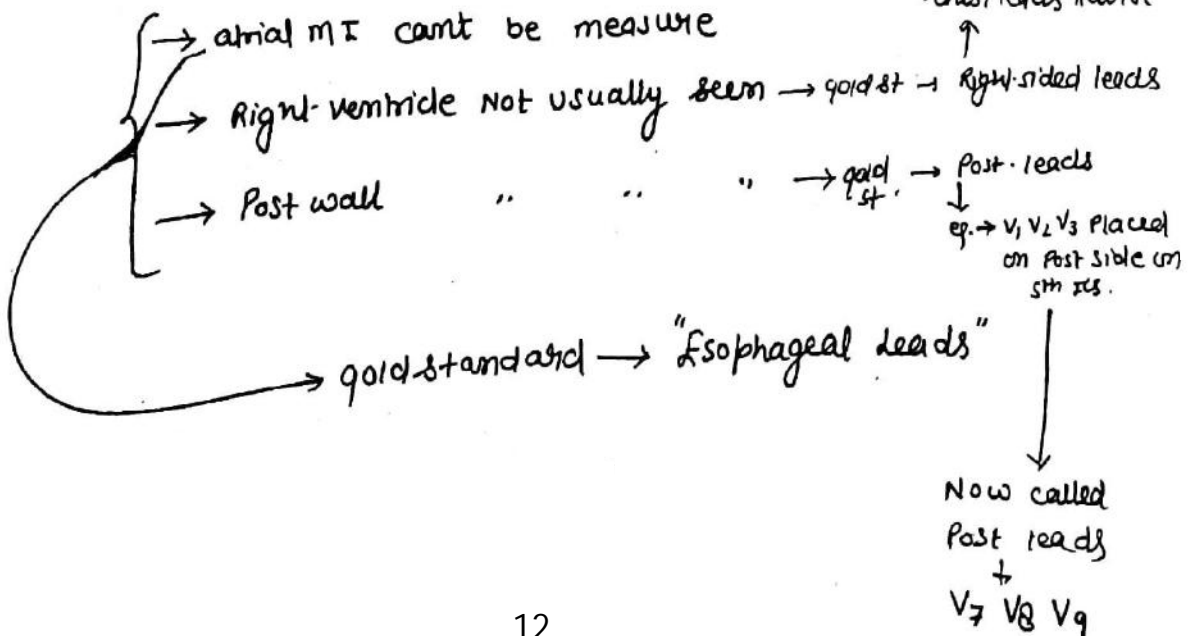 → atrial MI cant be measure
→ Right-ventricle Not usually seen → gold st → Right-sided leads
→ Post wall " " " → gold st. → Post. leads
eg. → V1 V2 V3 Placed
on Post side on
5th ICS.
gold standard → "Esophageal Leads"
Now called
Post leads
V7 V8 V9
12